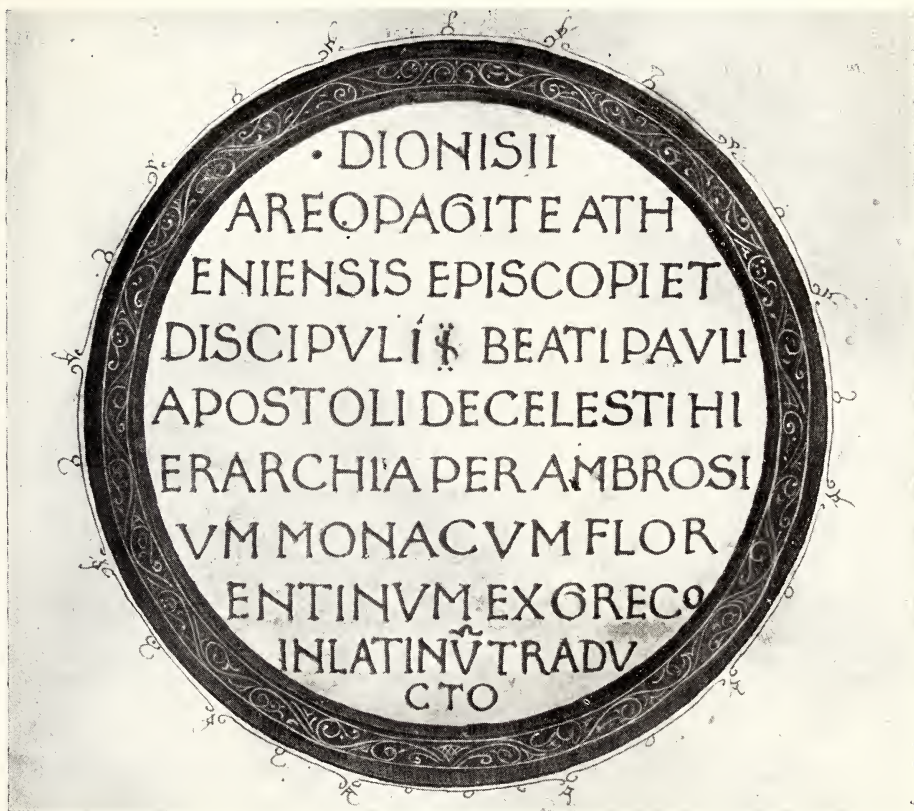 · DIONISII
AREOPAGITE ATH
ENIENSIS EPISCOPI ET
DISCIPVLI BEATI PAVLI
APOSTOLI DE CELESTI HI
ERARCHIA PER AMBROSI
VM MONACVM FLOR
ENTINVM EX GRECO
IN LATINṼ TRADV
CTO